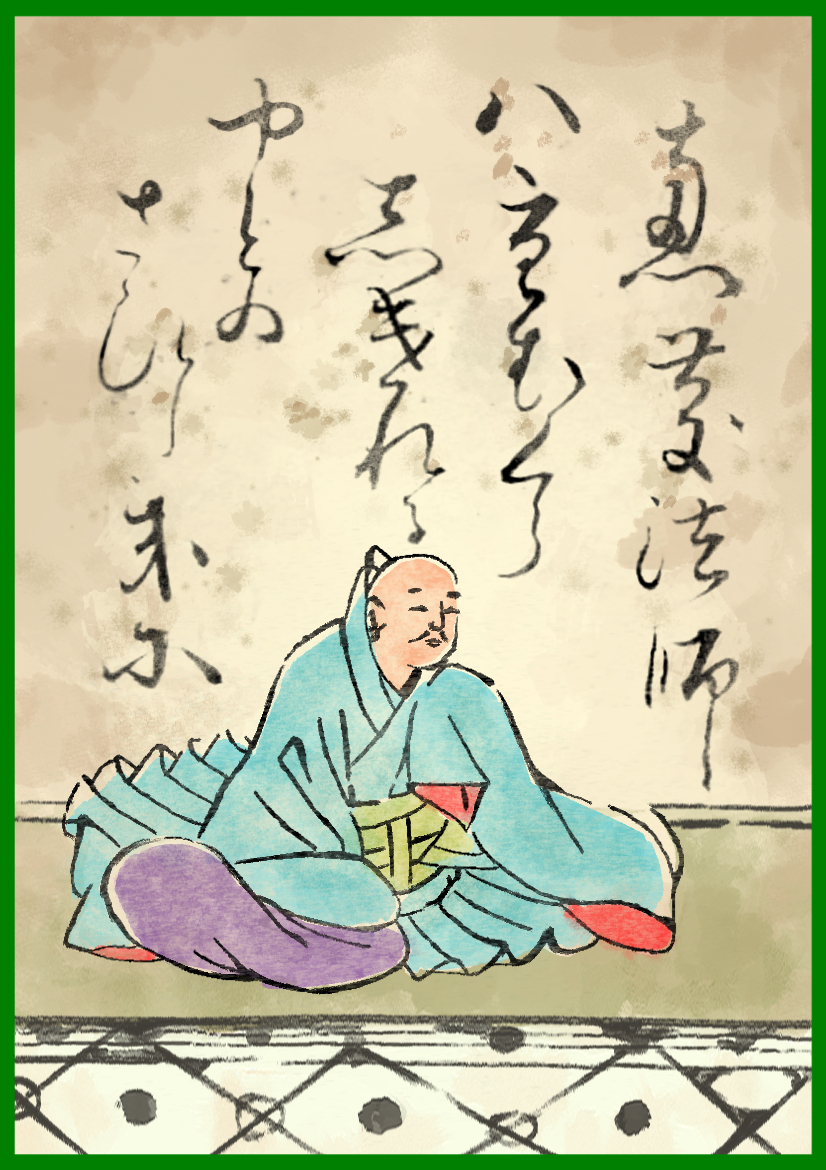 恵慶法師
八重むくら
志けれる
やとの
さひし来尓